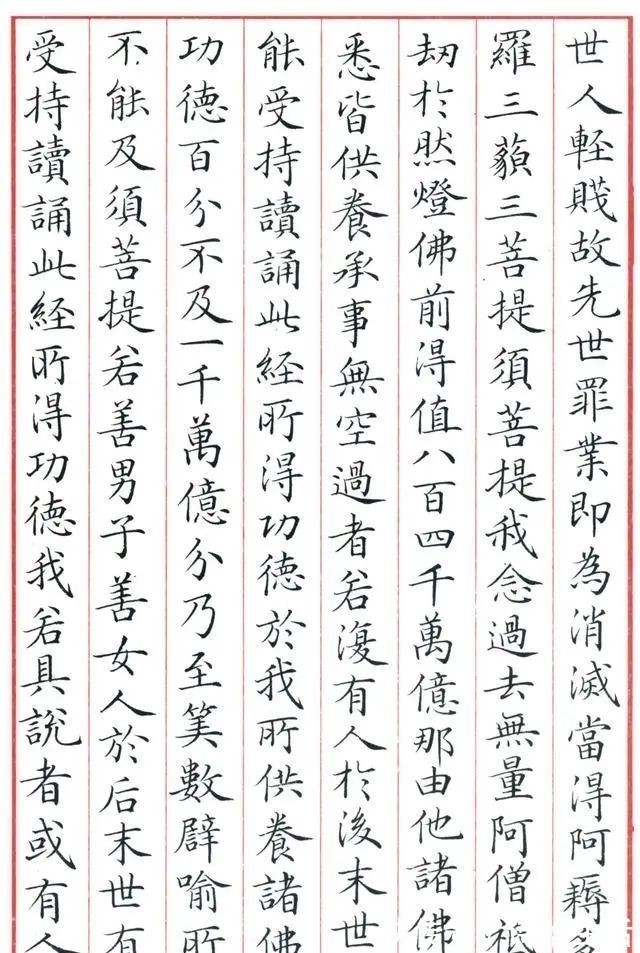 世人軽賤故先世罪業即為消滅當得阿耨多
羅三藐三菩提須菩提我念過去無量阿僧祇
劫扵然燈佛前得值八百四千萬億那由他諸佛
悉皆供養承事無空過者若復有人扵後末世
能受持讀誦此経所得功德於我所供養諸佛
功德百分不及一千萬億分乃至筭數譬喻所
不能及須菩提若善男子善女人於后末世有
受持讀誦此経所得功德我若具說者或有人